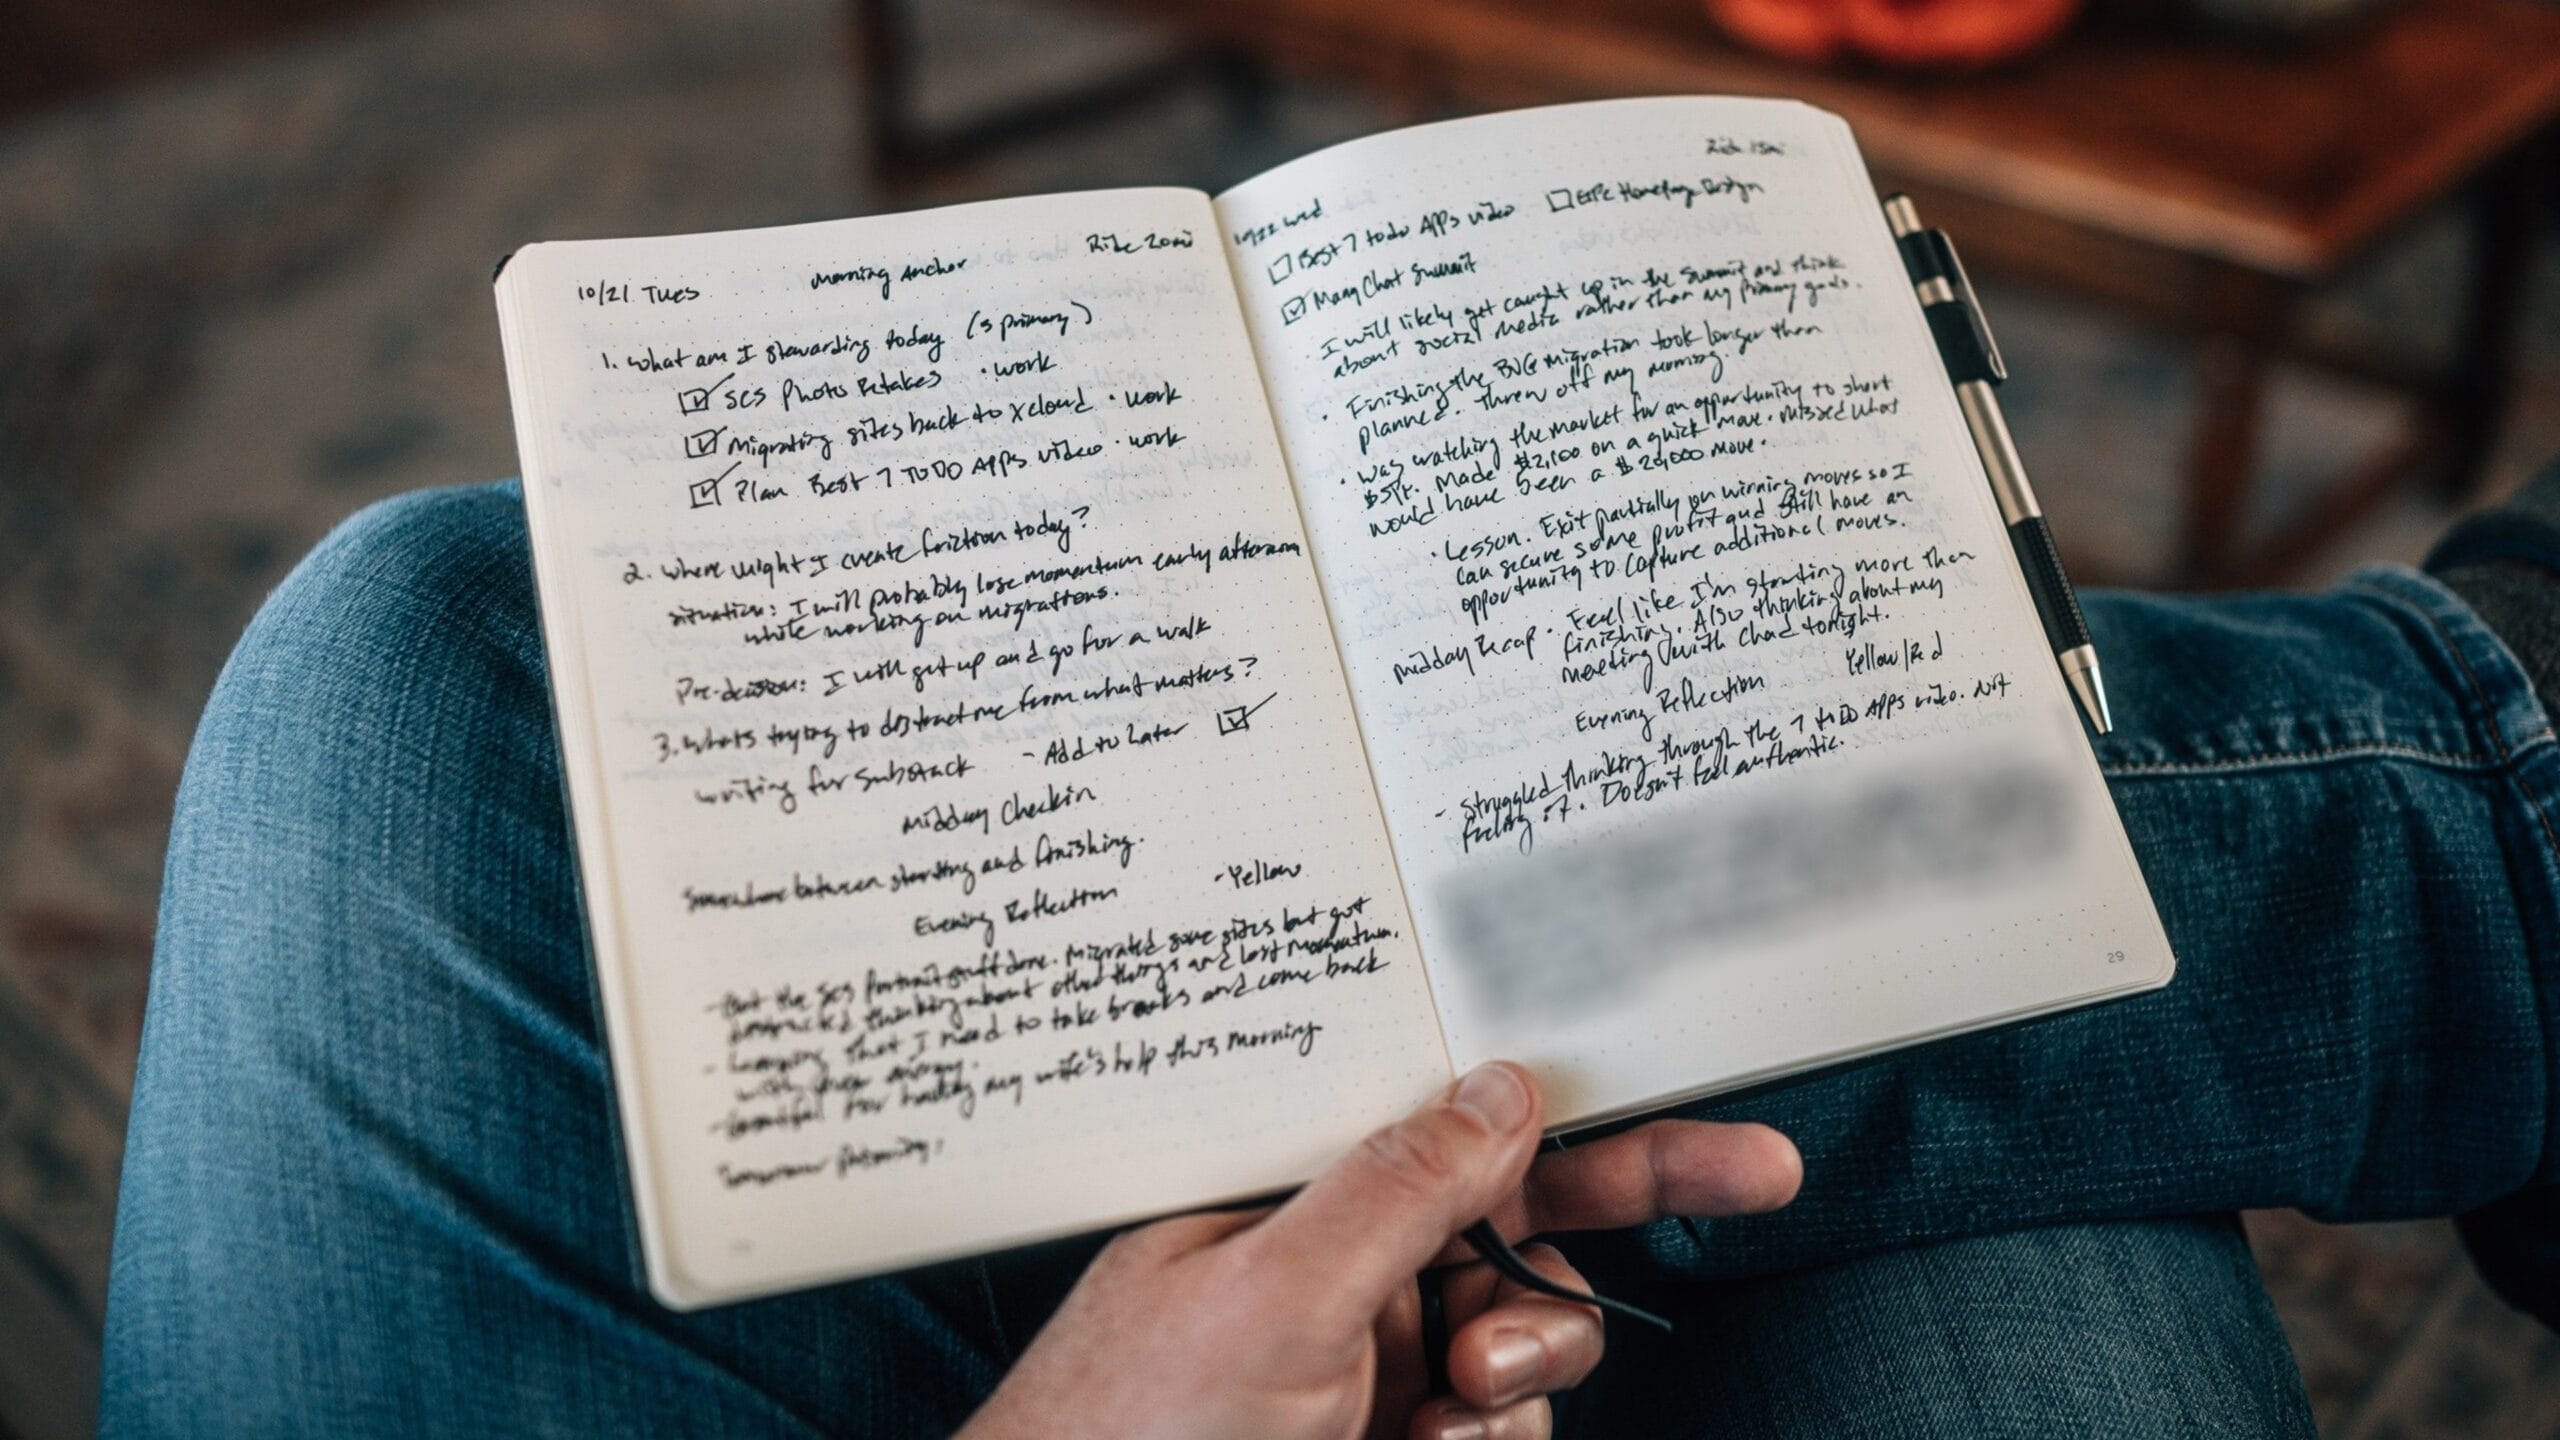 10/21 Tues Morning Anchor Ride 20mi
1. What am I stewarding today (3 primary)
SCS Photo Retakes · work
Migrating sites back to xcloud · work
Plan Best 7 TODO Apps video · work
2. Where might I create friction today?
situation: I will probably lose momentum early afternoon
while working on migrations.
Pre-decision: I will get up and go for a walk
3. Whats trying to distract me from what matters?
writing for Substack - Add to Later
Midday Checkin
Somewhere between starting and finishing.
Evening Reflection - Yellow
- Got the SCS Portrait stuff done. Migrated some sites but got
distracted thinking about other things and lost momentum.
- Learning that I need to take breaks and come back
with energy.
- Grateful for having my wife's help this morning
Tomorrow
10/22 Wed Ride 15mi
Best 7 todo Apps video Homepage Design
ManyChat Summit
· I will likely get caught up in the Summit and think
about social media rather than my primary goals.
· Finishing the migration took longer than
planned. Threw off my morning.
· Was watching the market for an opportunity to short
Made $2,100 on a quick move. Missed what
would have been a $20,000 move.
· Lesson. Exit partially on winning moves so I
can secure some profit and still have an
opportunity to capture additional moves.
Midday Recap · Feel like I'm starting more than
finishing. Also thinking about my
meeting with Chad tonight.
Evening Reflection Yellow/Red
- Struggled thinking through the 7 todo Apps video. Not
feeling it. Doesn't feel authentic.
29